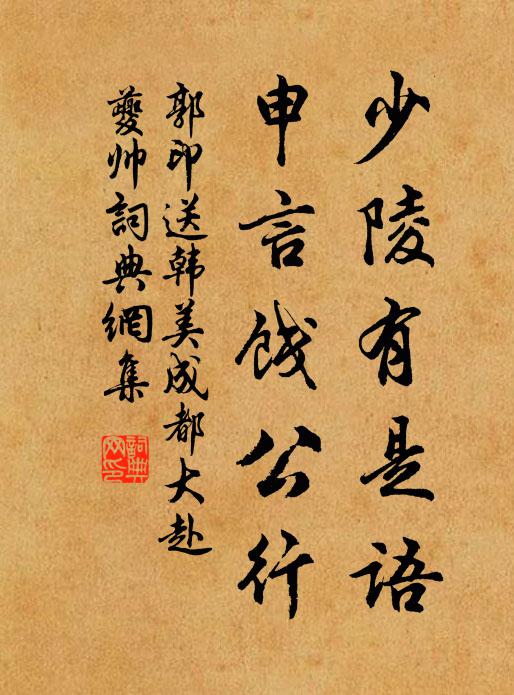 少陵有是语
申言饯公行
郭印送韩美成都大赴
夔帅詞典網集
詞典网印